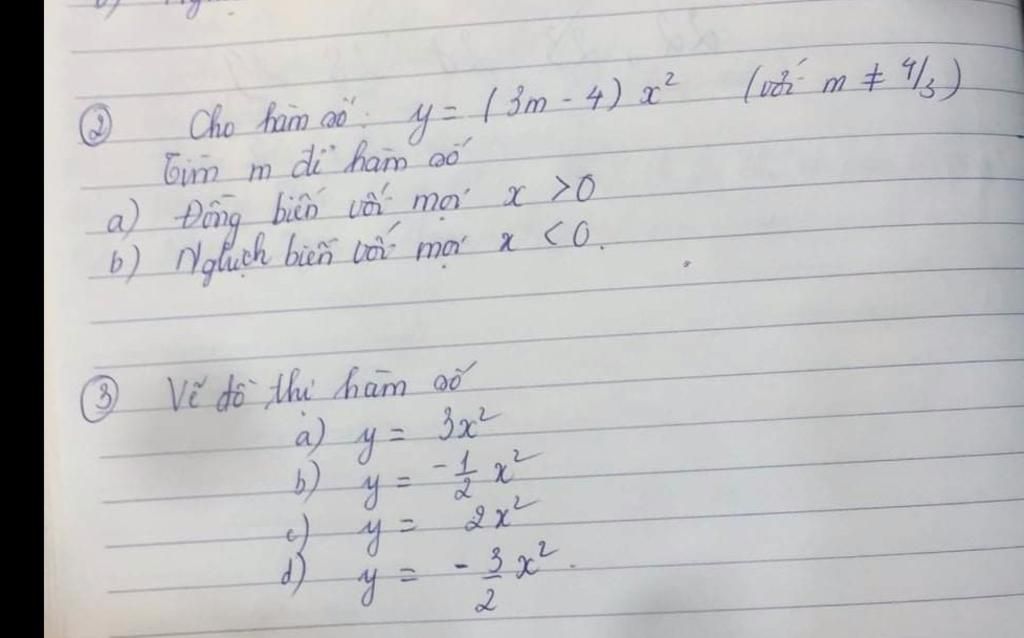 ② Cho hàm số: y = (3m - 4) x² (với m ≠ 4/3)
Tìm m để hàm số
a) Đồng biến với mọi x > 0
b) Nghịch biến với mọi x < 0.
③ Vẽ đồ thị hàm số
a) y = 3x²
b) y = -1/2 x²
c) y = 2x²
d) y = - 3/2 x².